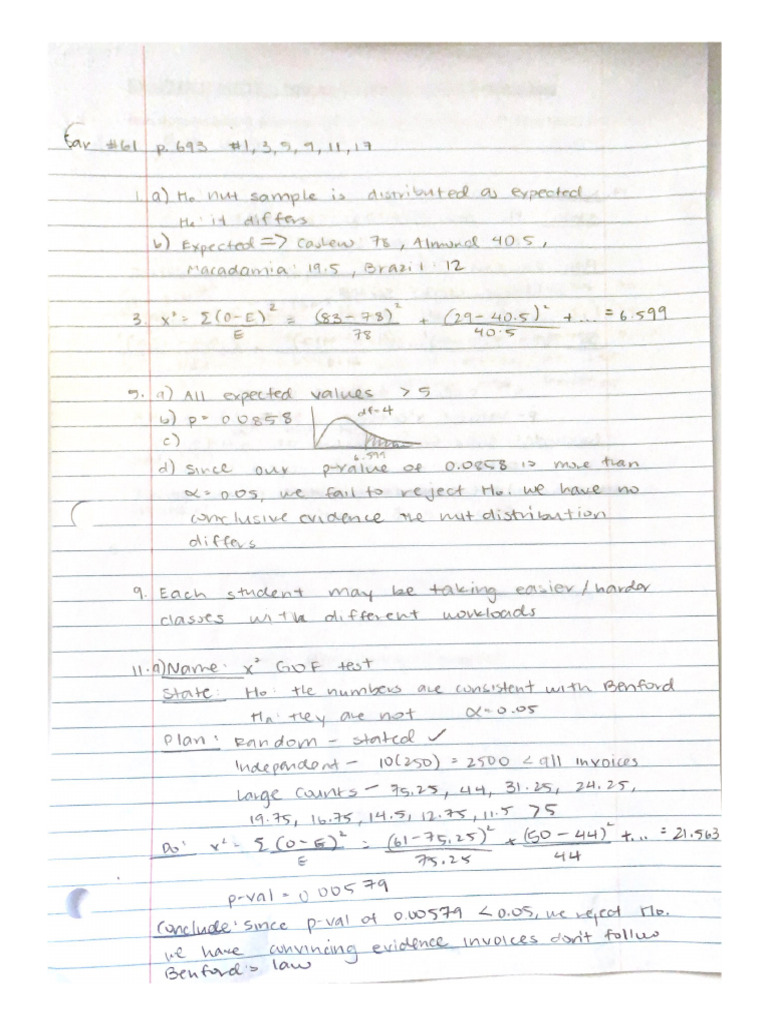 Ear #61 p. 693 #1, 3, 5, 9, 11, 17
1. a) Ho nut sample is distributed as expected
Ha: it differs
b) Expected => Cashew: 78, Almond 40.5,
Macadamia: 19.5, Brazil: 12
3. x² = Σ(O-E)²/E = (83-78)²/78 + (29-40.5)²/40.5 + ... = 6.599
5. a) All expected values > 5
b) p = 0.0858 df=4
c) 6.599
d) Since our p-value of 0.0858 is more than
α = 0.05, we fail to reject Ho. we have no
conclusive evidence the nut distribution
differs
9. Each student may be taking easier/harder
classes with different workloads
11. a) Name: x² GOF test
State: Ho: the numbers are consistent with Benford
Ha: they are not α=0.05
Plan: Random - stated ✓
Independent - 10(250) = 2500 < all invoices
Large Counts - 75.25, 44, 31.25, 24.25,
19.75, 16.75, 14.5, 12.75, 11.5 >5
Do: x² = Σ(O-E)²/E = (61-75.25)²/75.25 + (50-44)²/44 + ... = 21.563
p-val = 0.00579
Conclude: Since p-val of 0.00579 < 0.05, we reject Ho.
we have convincing evidence invoices don't follow
Benford's law